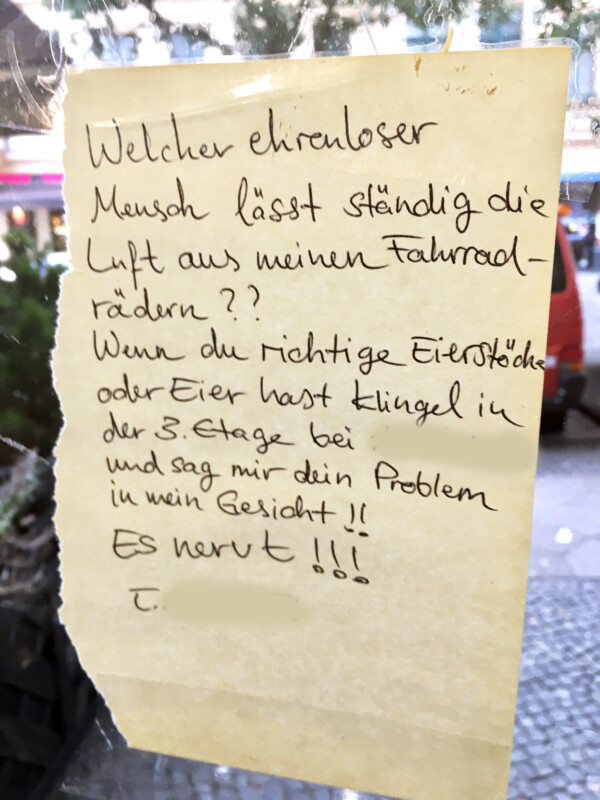 Welcher ehrenloser
Mensch lässt ständig die
Luft aus meinen Fahrrad-
rädern ??
Wenn du richtige Eierstöcke
oder Eier hast klingel in
der 3. Etage bei
und sag mir dein Problem
in mein Gesicht !!
Es nervt !!!
T.